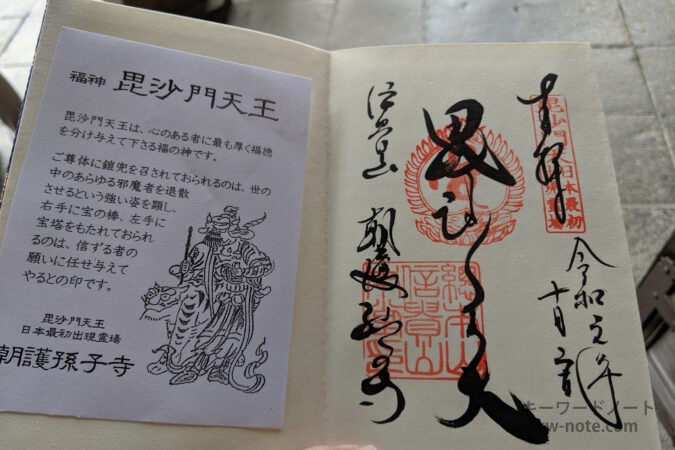 福神 毘沙門天王
毘沙門天王は、心のある者に最も厚く福徳
を分け与えて下さる福の神です。
ご尊体に鎧兜を召されておられるのは、世の
中のあらゆる邪魔者を退散
させるという強い姿を願し、
右手に宝の棒、左手に
宝塔をもたれておられ
るのは、信ずる者の
願いに任せ与えて
やるとの印です。
毘沙門天王
日本最初出現霊場
朝護孫子寺
奉拝
日本最初
令和元年
十月
信貴山
朝護孫子寺
総本山
信貴山
キーワードノート
kw-note.com